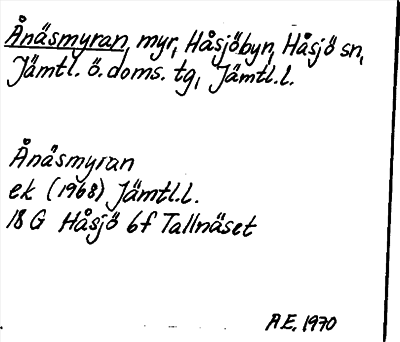 Ånäsmyran, myr, Håsjöbyn, Håsjö sn,
Jämtl. ö. doms. tg, Jämtl.l.
Ånäsmyran
ek (1968) Jämtl.l.
18 G Håsjö 6f Tallnäset
A E, 1970